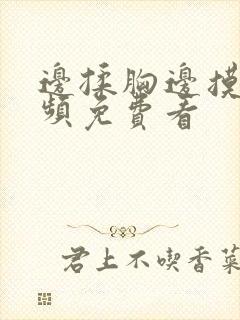 邊揉胸邊摸
頻免費看
君上不喫香菜